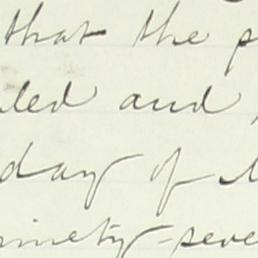 that the
and
day of
ninety-seve